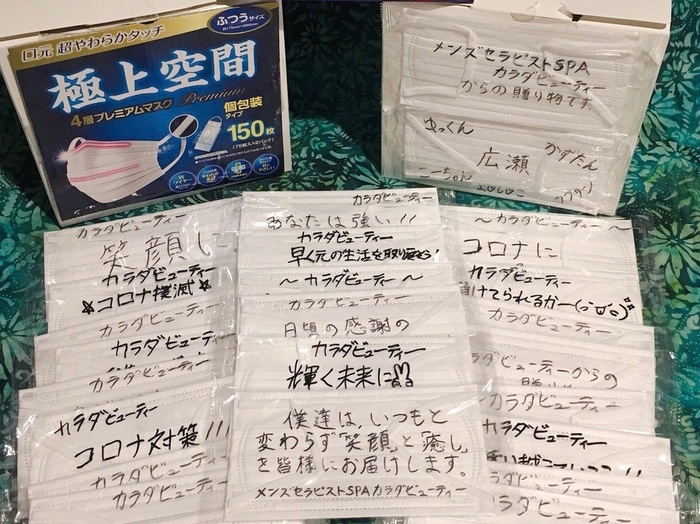 ふつうサイズ
口元 超やわらかタッチ
極上空間
4層プレミアムマスク Premium
個包装
タイプ
150枚
(75枚入×2パック)
メンズセラピストSPA
カラダビューティー
からの贈り物です。
ゆっくん
広瀬
かずたん
こーちゃん
カラダビューティー
笑顔に
カラダビューティー
☆コロナ撲滅☆
カラダビューティー
カラダビューティー
カラダビューティー
カラダビューティー
コロナ対策!!!
カラダビューティー
カラダビューティー
カラダビューティー
あなたは強い!!
カラダビューティー
早く元の生活を取り戻そう!
～カラダビューティー～
カラダビューティー
日頃の感謝の
カラダビューティー
輝く未来に
カラダビューティー
僕達は、いつもと
変わらず「笑顔」と「癒し」
を皆様にお届けします。
メンズセラピストSPAカラダビューティー
～カラダビューティー～
コロナに
カラダビューティー
負けてられるかー
カラダビューティー
カラダビューティーからの
カラダビューティー
カラダビューティー
カラダビューティー
カラダビューティー